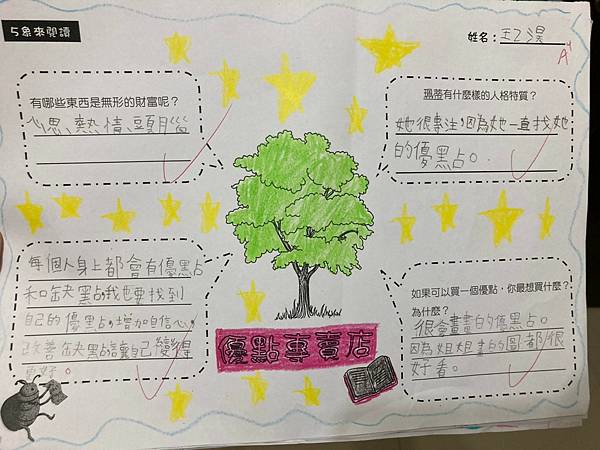 5象來閱讀
姓名：
A+
有哪些東西是無形的財富呢？
心思、熱情、頭腦
瑥蒂有什麼樣的人格特質？
她很專注，因為她一直找她
的優點。
每個人身上都會有優點
和缺點我也要找到
自己的優點，增加自信心，
改善缺點讓自己變得
更好。
優點專賣店
如果可以買一個優點，你最想買什麼？
為什麼？
很會畫畫的優點。
因為姐姐畫的圖都很
好看。